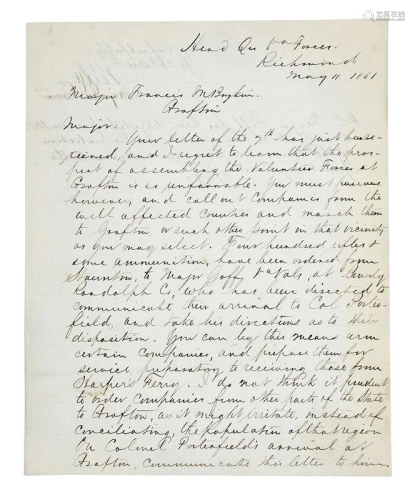 Head Qrs Va Forces.
Richmond
May 11 1861
Major Francis M Boykin.
Grafton
Major
Your letter of the 7th has just been re-
ceived, and I regret to learn that the pros-
pect of assembling the Volunteer Forces at
Grafton is so unfavorable. You must persevere
however, and call out Companies from the
well affected Counties and march them
to Grafton or such other point in that vicinity
as you may select. Four hundred rifles &
some ammunition, have been ordered from
Staunton, to Major Goff, Va Vols, at Beverly
Randolph Co, who has been directed to
communicate their arrival to Col Porter-
field, and take his directions as to their
disposition. You can by this means arm
certain Companies, and prepare them for
service, preparatory to receiving those from
Harper's Ferry. I do not think it prudent
to order Companies from other parts of the State
to Grafton, as it might irritate, instead of
conciliating, the population of that region
On Colonel Porterfield's arrival at
Grafton, communicate this letter to him